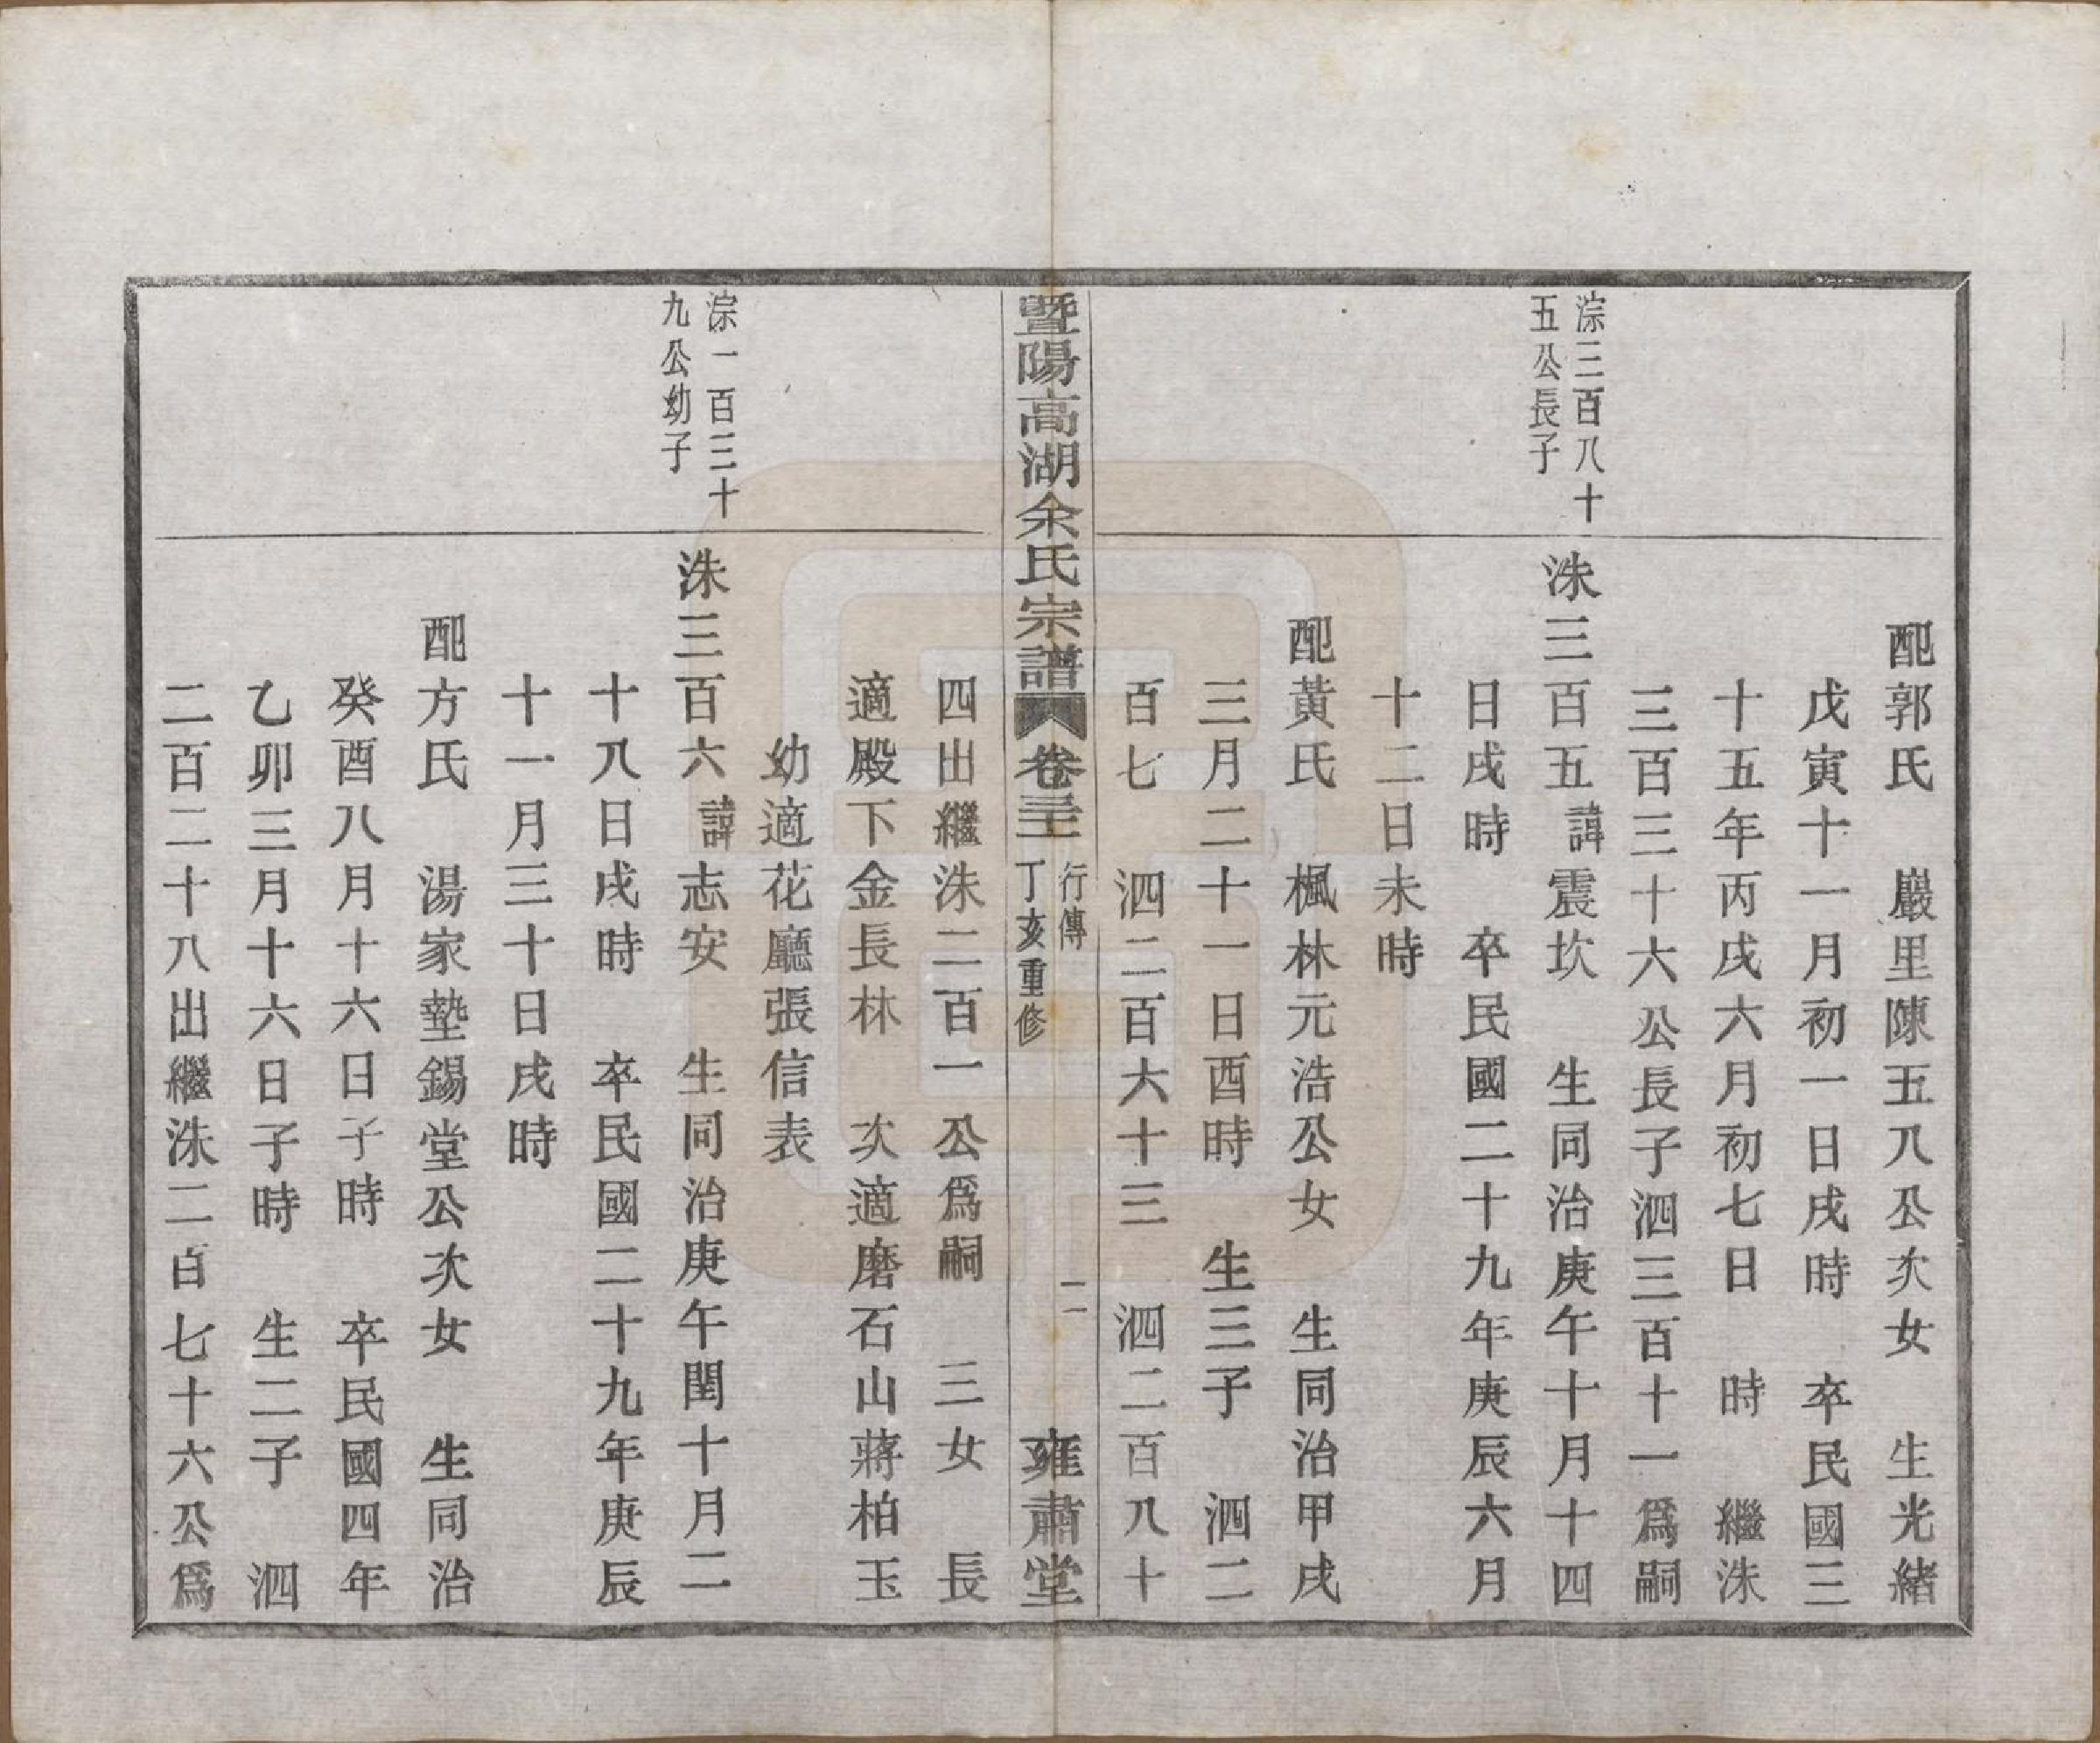 配郭氏　巖里陳五八公次女　生光緒
戊寅十一月初一日戌時　卒民國三
十五年丙戌六月初七日　時　繼洙
三百三十六公長子泗三百十一爲嗣
淙三百八十
五公長子
洙三百五　諱震坎　生同治庚午十月十四
日戌時　卒民國二十九年庚辰六月
十二日未時
配黃氏　楓林元浩公女　生同治甲戌
三月二十一日酉時　生三子　泗二
百七　泗二百六十三　泗二百八十
暨陽高湖余氏宗譜　卷三十二　行傳　丁亥重修　二　雍肅堂
四出繼洙二百一公爲嗣　三女　長
適殿下金長林　次適磨石山蔣柏玉
幼適花廳張信表
淙一百三十
九公幼子
洙三百六　諱志安　生同治庚午閏十月二
十八日戌時　卒民國二十九年庚辰
十一月三十日戌時
配方氏　湯家墊錫堂公次女　生同治
癸酉八月十六日子時　卒民國四年
乙卯三月十六日子時　生二子　泗
二百二十八出繼洙二百七十六公爲